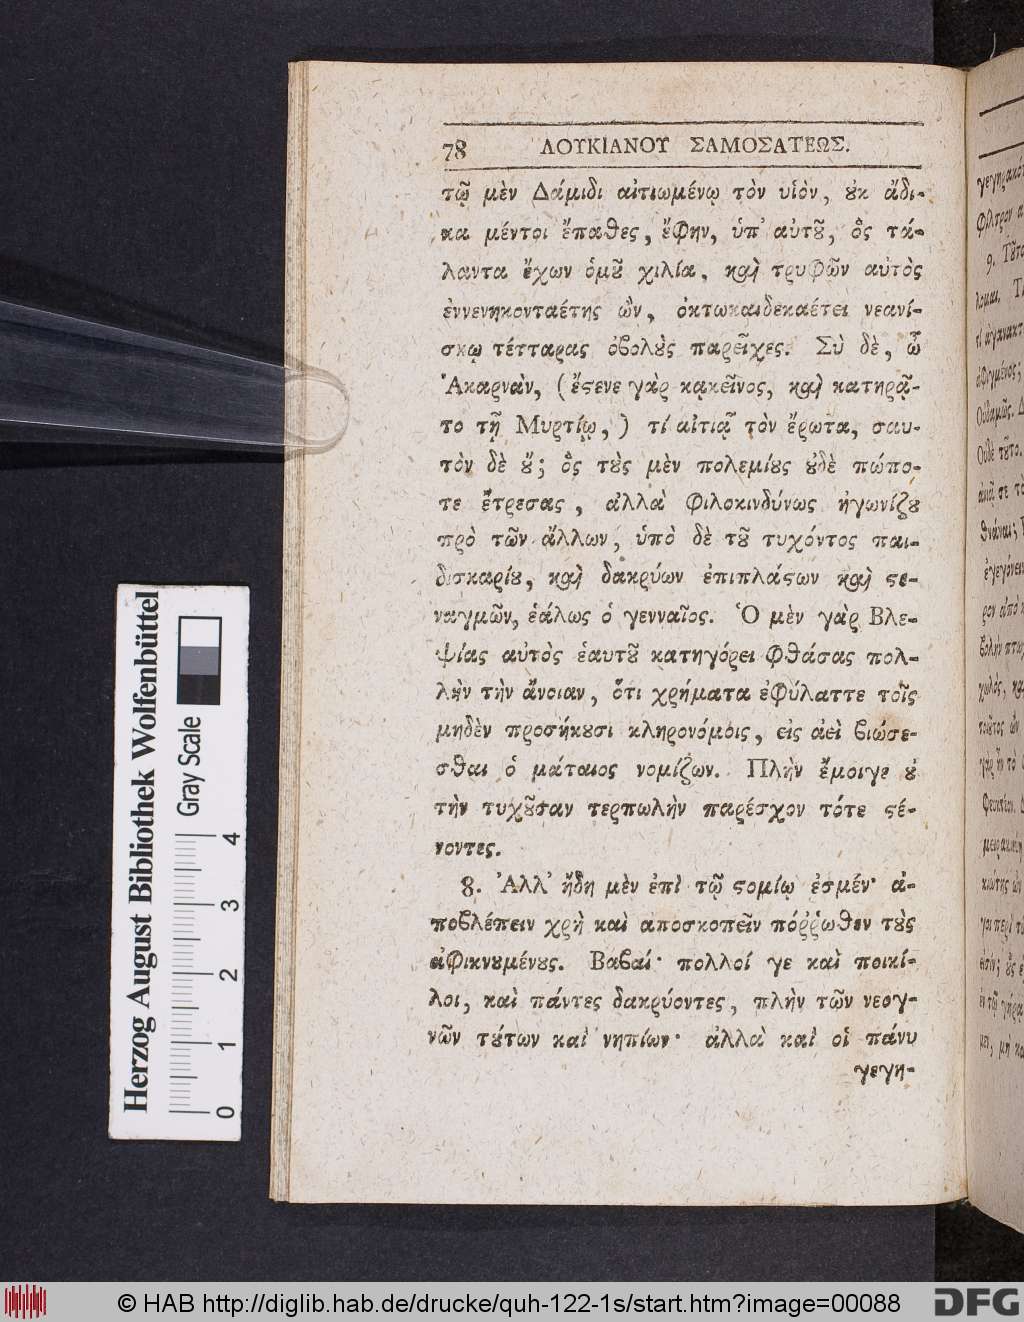 78 ΛΟΥΚΙΑΝΟΥ ΣΑΜΟΣΑΤΕΩΣ.
τῷ μὲν Δάμιδι αἰτιωμένῳ τὸν υἱὸν, ȣκ ἄδι-
κα μέντοι ἔπαθες, ἔφην, ὑπ᾽ αὐτȣ͂, ὃς τά-
λαντα ἔχων ὁμȣ͂ χιλία, καὶ τρυφῶν αὐτὸς
ἐννενηκονταέτης ὢν, ὀκτωκαιδεκαέτει νεανί-
σκῳ τέτταρας ὀϐολȣ̀ς παρεῖχες. Σὺ δὲ, ὦ
Ἀκαρνὰν, (ἔςενε γὰρ κᾳκεῖνος, καὶ κατηρᾷ-
το τῇ Μυρτίῳ,) τί αἰτιᾷ τὸν ἔρωτα, σαυ-
τὸν δὲ ȣ̓́; ὃς τȣ̀ς μὲν πολεμίȣς ȣ̓δὲ πώπο-
τε ἔτρεσας, ἀλλὰ φιλοκινδύνως ἠγωνίζȣ
πρὸ τῶν ἄλλων, ὑπὸ δὲ τȣ͂ τυχόντος παι-
δισκαρίȣ, καὶ δακρύων ἐπιπλάςων καὶ ςε-
ναγμῶν, ἑάλως ὁ γενναῖος. Ὁ μὲν γὰρ Βλε-
ψίας αὐτὸς ἑαυτȣ͂ κατηγόρει φθάσας πολ-
λὴν τὴν ἄνοιαν, ὅτι χρήματα ἐφύλαττε τοῖς
μηδὲν προσήκȣσι κληρονόμοις, εἰς ἀεὶ ϐιώσε-
σθαι ὁ μάταιος νομίζων. Πλὴν ἔμοιγε ȣ̓
τὴν τυχȣ͂σαν τερπωλὴν παρέσχον τότε ςέ-
νοντες.
8. Ἀλλ᾽ ἤδη μὲν ἐπὶ τῷ ςομίῳ ἐσμέν· ἀ-
ποϐλέπειν χρὴ καὶ αποσκοπεῖν πόῤῥωθεν τȣ̀ς
ἀφικνȣμένȣς. Βαϐαί· πολλοί γε καὶ ποικί-
λοι, καὶ πάντες δακρύοντες, πλὴν τῶν νεογ-
νῶν τȣ́των καὶ νηπίων· ἀλλὰ καὶ οἱ πάνυ
γεγη-
Herzog August Bibliothek Wolfenbüttel
Gray Scale
0 1 2 3 4
© HAB http://diglib.hab.de/drucke/quh-122-1s/start.htm?image=00088
DFG